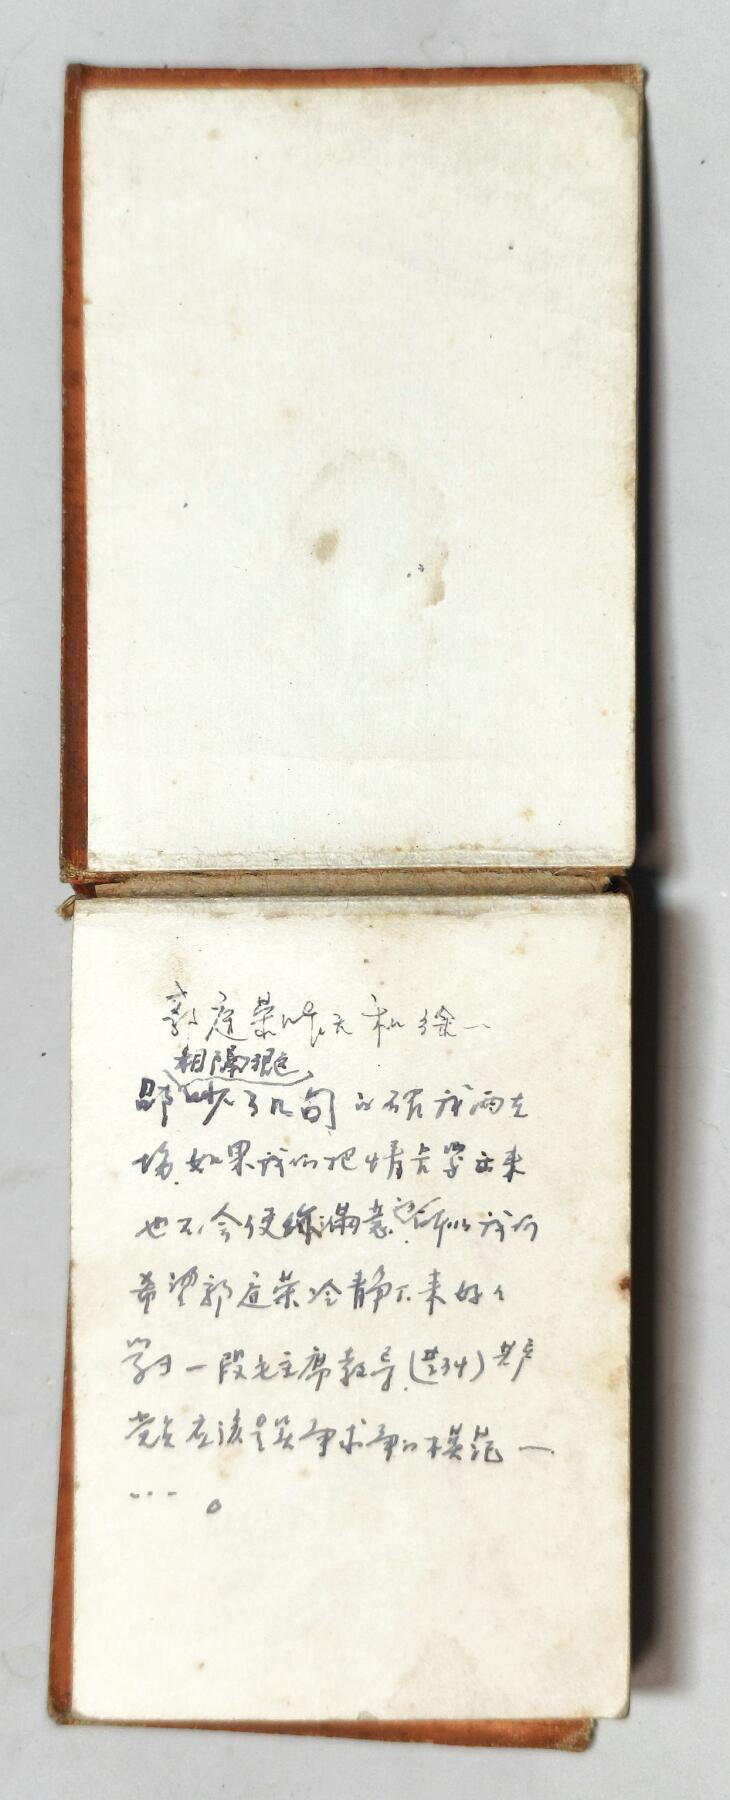 郭庭荣昨天和徐一
相隔
吵了几句 我两立
场,如果我们把情 学出来
也不会使你满意,所以我们
希望郭庭荣冷静下来好々
学习一段毛主席教导(34)共产
党员应该是实事求事的模范一
…。